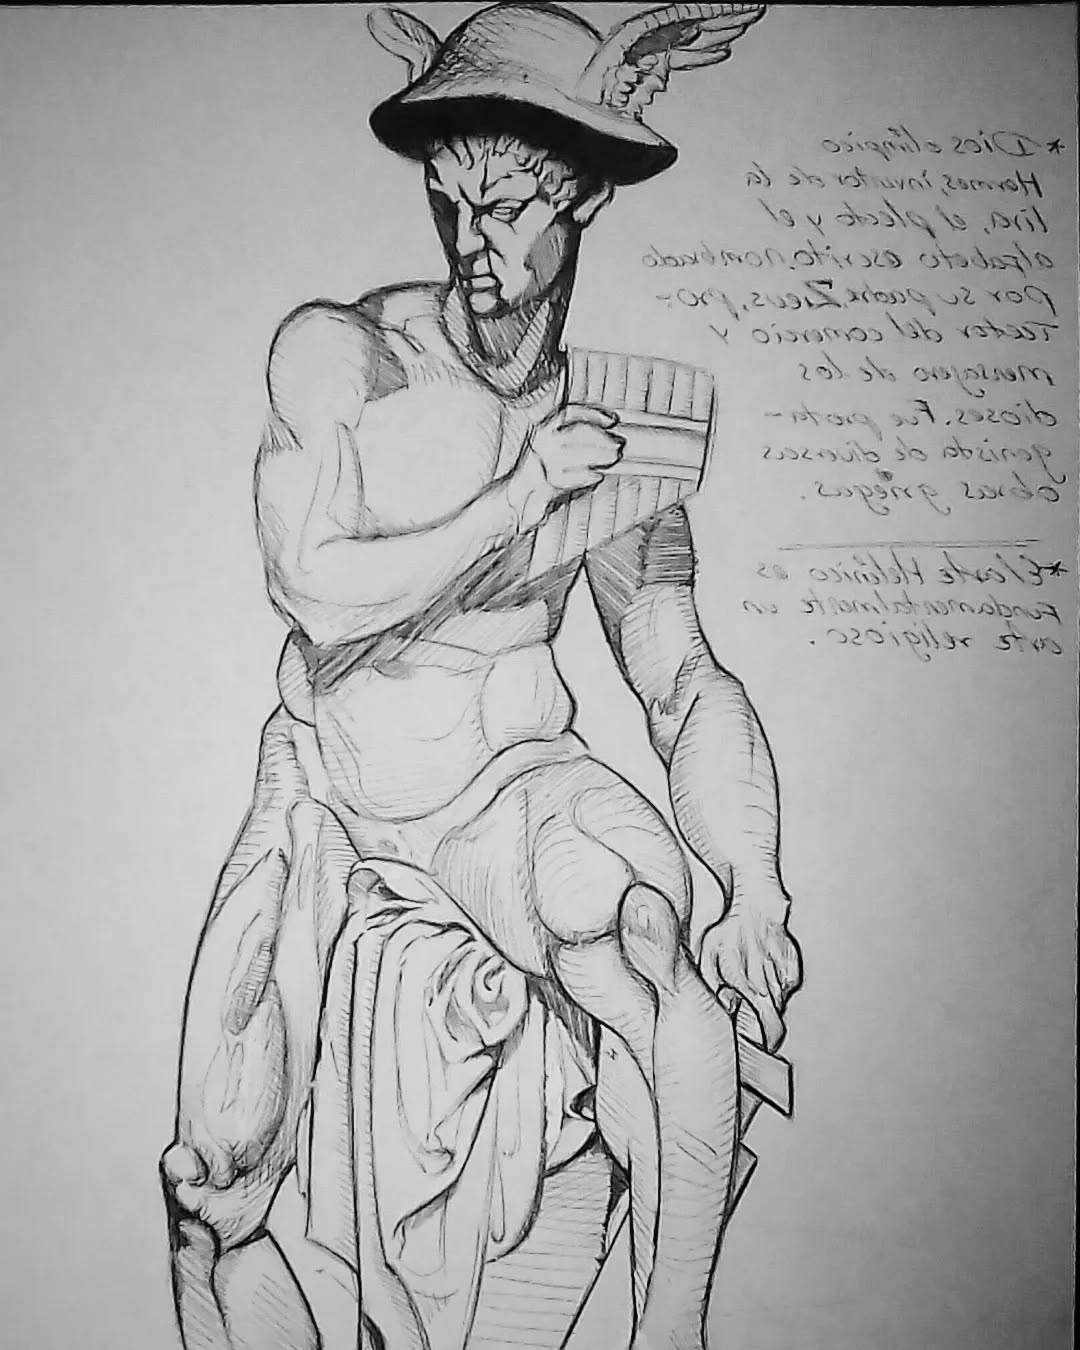 *Dios olímpico
Hermes, inventor de la
lira, el plecto y el
alfabeto escrito, nombrado
por su padre, Zeus, pro-
tector del comercio y
mensajero de los
dioses. Fue prota-
gonista de diversas
obras griegas.
*El arte Helénico es
Fundamentalmente un
arte religioso.